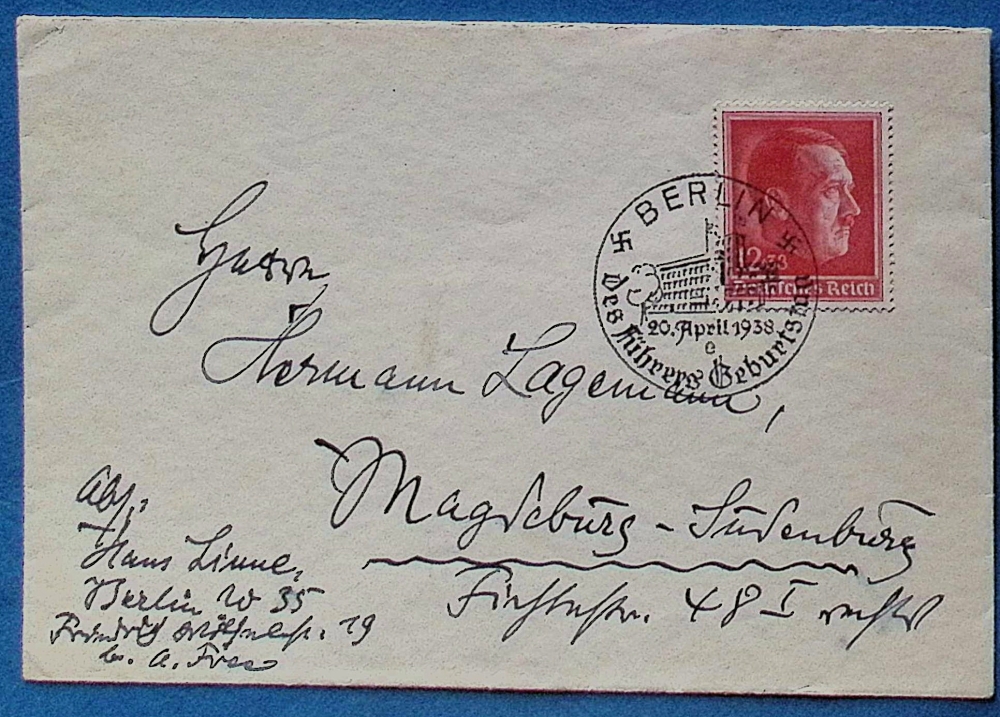 12+38
Deutsches Reich
BERLIN
20. April 1938
e
des Führers Geburtstag
Herrn
Hermann Lagemann,
Magdeburg - Sudenburg
48 I rechts
Abs.:
Hans Linne,
Berlin W 35
19
b. A.